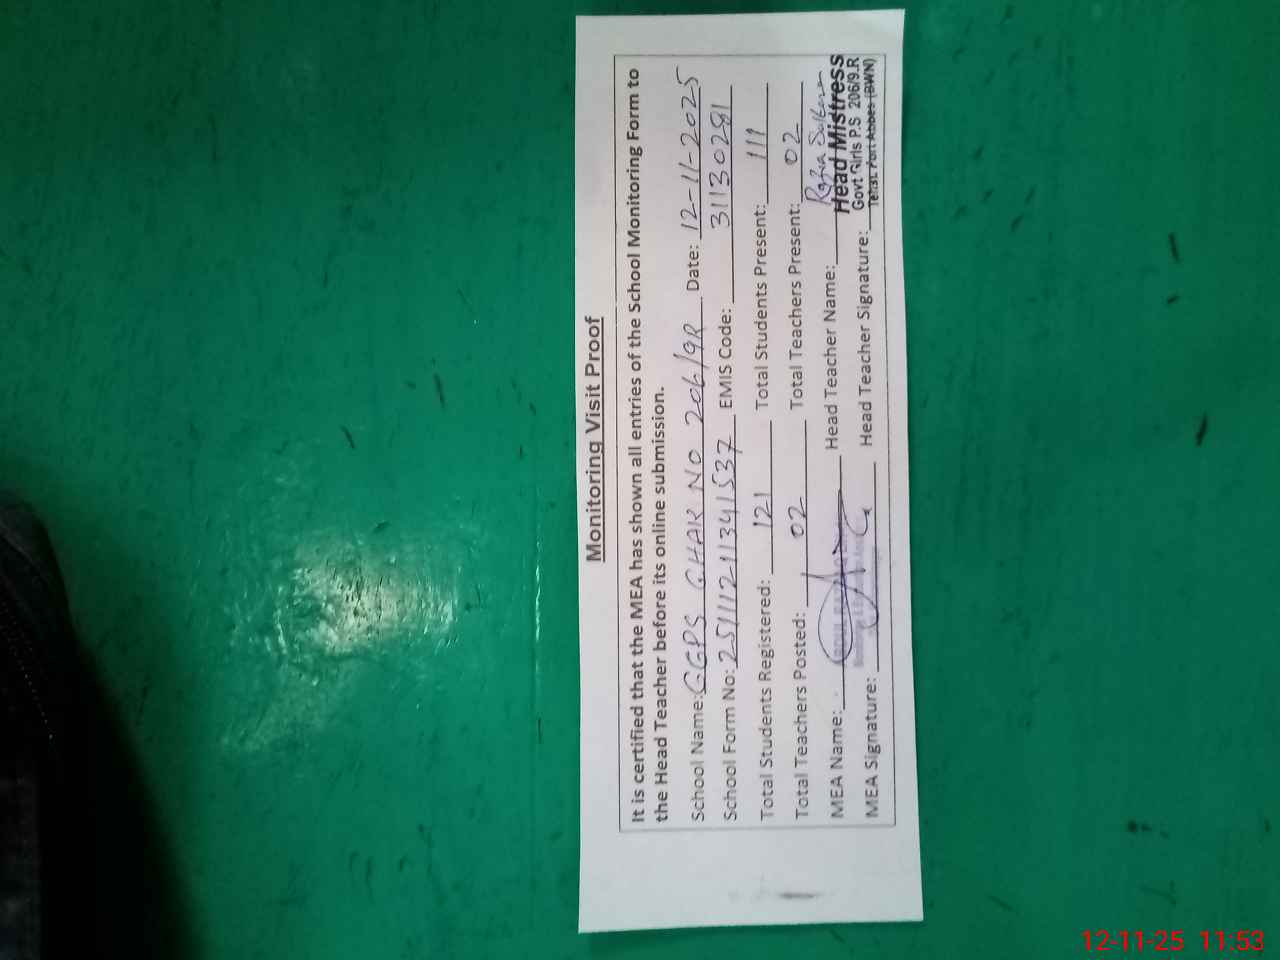 Monitoring Visit Proof
It is certified that the MEA has shown all entries of the School Monitoring Form to
the Head Teacher before its online submission.
School Name: GGPS CHAK NO 206/9R Date: 12-11-2025
School Form No: 25111211341537 EMIS Code: 31130281
Total Students Registered: 121 Total Students Present: 111
Total Teachers Posted: 02 Total Teachers Present: 02
MEA Name: Head Teacher Name: Razia Sultana
Head Mistress
MEA Signature: Head Teacher Signature:
Govt Girls P.S 206/9.R
Tehsl. Fort Abbas (BWN)
12-11-25 11:53